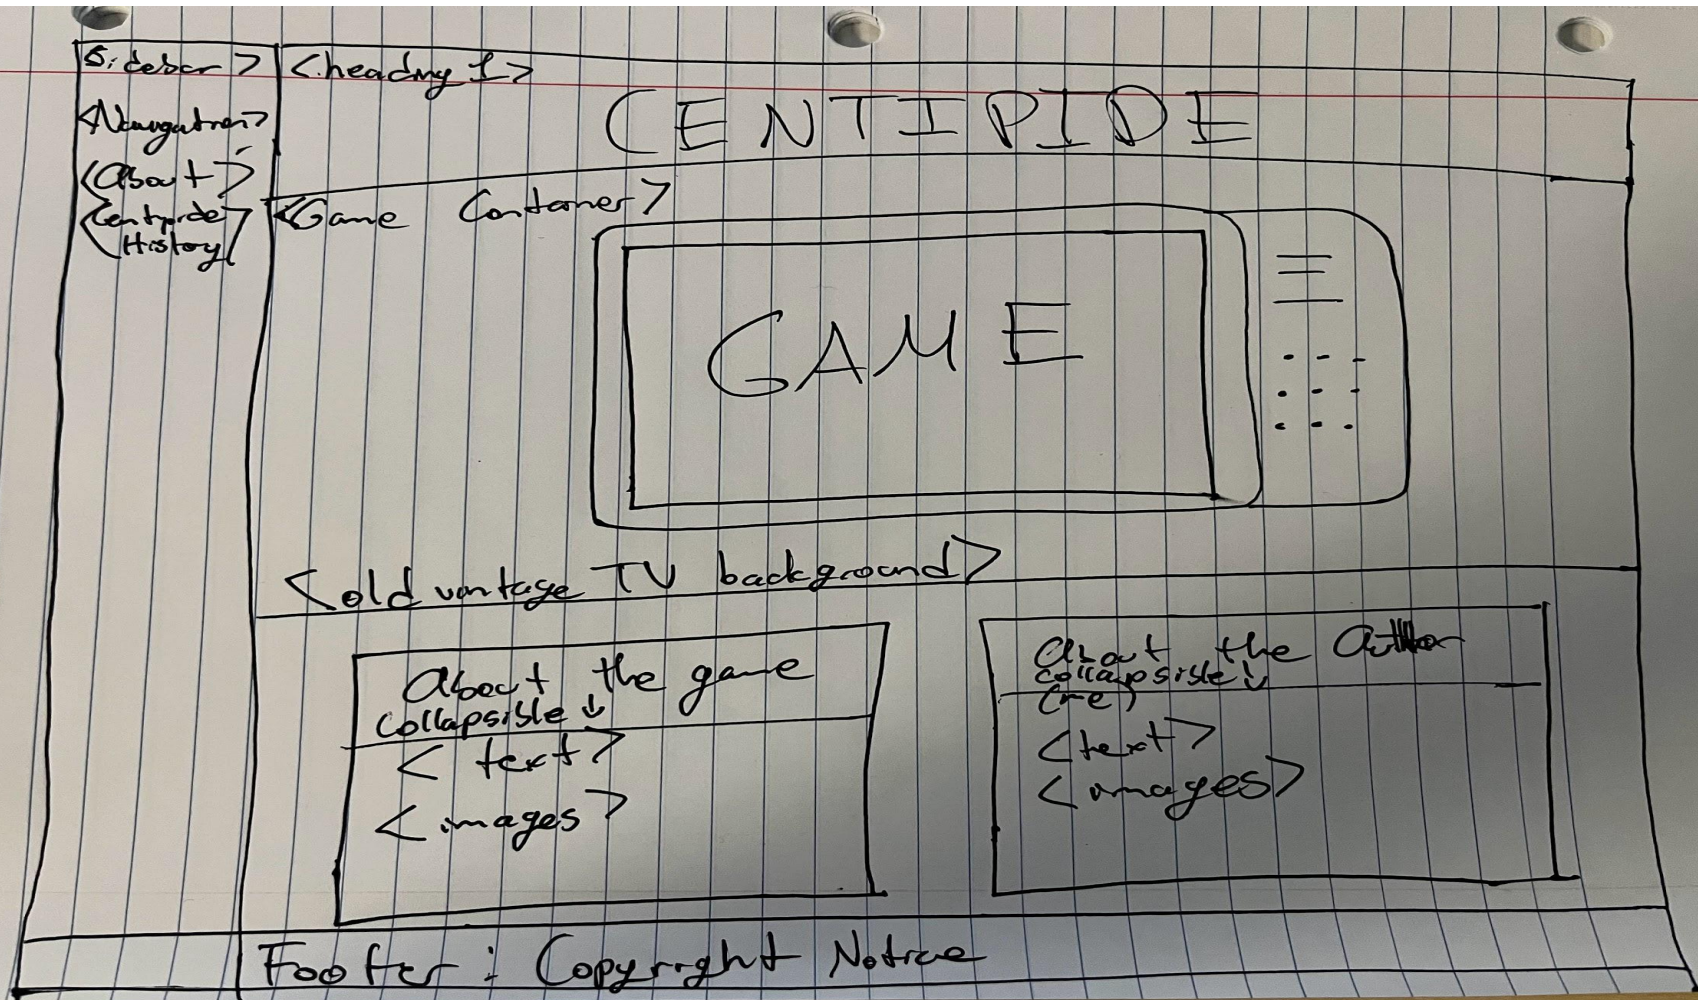 Sidebar >
<Navigation>
<About>
<Centipide
History>
<heading 1>
CENTIPIDE
<Game Container>
GAME
<old vantage TV background>
About the game
collapsible ↓
< text >
<images>
About the Author
collapsible ↓
(me)
<text>
<images>
Footer : Copyright Notice